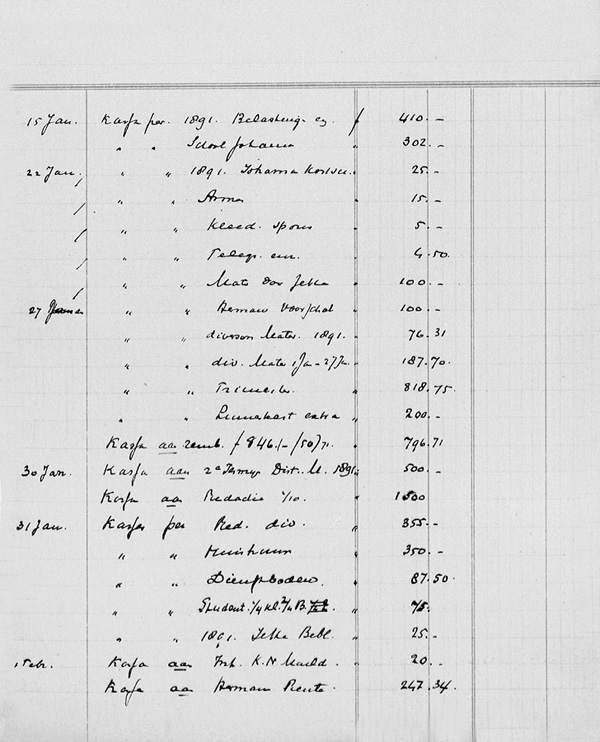 15 Jan. Kassa per. 1891. Belasting. f 410.-
" " School Johanna " 302.-
22 Jan. " " 1891. Johanna " 25.-
" " Armen " 15.-
" " Kleed. spoor " 5.-
" " Telegr. " 4.50.
" " " 100.-
27 " " Herman Voorschot " 100.-
" " diversen Maten. 1891. " 76.31
" " div. Mate 1 Ja - 27 Ja. " 187.70.
" " Trimester " 818.75.
" " Linnenkast extra " 200.-
Kassa aan remb. f 846.1- /50/71. " 796.71
30 Jan. Kassa aan 2e Termijn Distr. M. 1891 " 500.-
Kassa aan Redactie 1/10. " 1500
31 Jan. Kassa per Red. div. " 355.-
" " Huishuur " 350.-
" " Dienstboden. " 87.50.
" " Student. " 75.
" " 1891. Jetta Bebl. " 25.-
1 Febr. Kassa aan K.N. " 20.-
Kassa aan Herman Rente " 247.34.